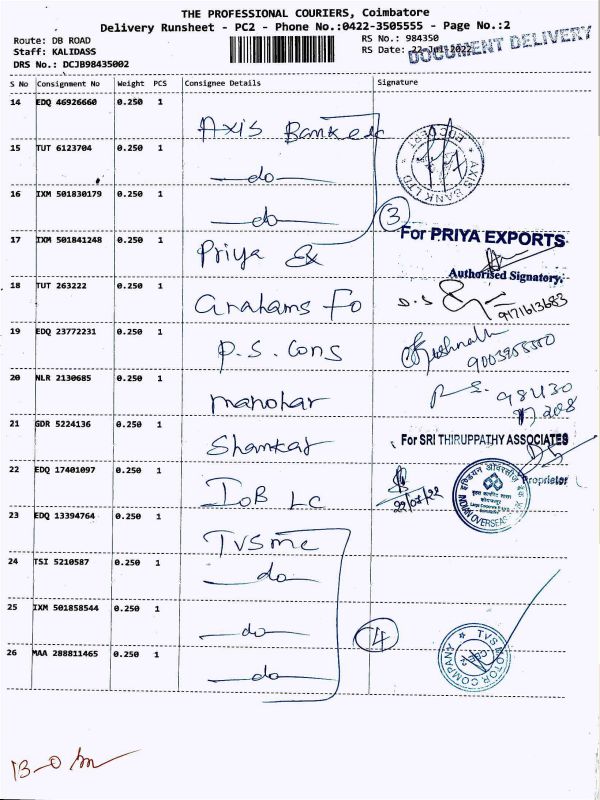 THE PROFESSIONAL COURIERS, Coimbatore
Delivery Runsheet - PC2 - Phone No.:0422-3505555 - Page No.:2
Route: DB ROAD
RS No.: 984350
Staff: KALIDASS
RS Date: 22-Jul-2022
DOCUMENT DELIVERY
DRS No.: DCJB98435002
S No Consignment No Weight PCS Consignee Details Signature
14 EDQ 46926660 0.250 1 Axis Bank
AXIS BANK LTD
15 TUT 6123704 0.250 1 do
16 IXM 501830179 0.250 1 do
3
17 IXM 501841248 0.250 1 Priya Ex
For PRIYA EXPORTS
Authorised Signatory.
18 TUT 263222 0.250 1 Grahams Fo
D.S
19 EDQ 23772231 0.250 1 P.S. Cons
20 NLR 2130685 0.250 1 manohar
21 GDR 5224136 0.250 1 Shankar
For SRI THIRUPPATHY ASSOCIATES
Proprietor
22 EDQ 17401097 0.250 1 IOB LC
22/07/22
INDIAN OVERSEAS
23 EDQ 13394764 0.250 1 TVS mc
24 TSI 5210587 0.250 1 do
25 IXM 501858544 0.250 1 do
4
26 MAA 288811465 0.250 1 do
TVS MOTOR COMPANY
CBE-2